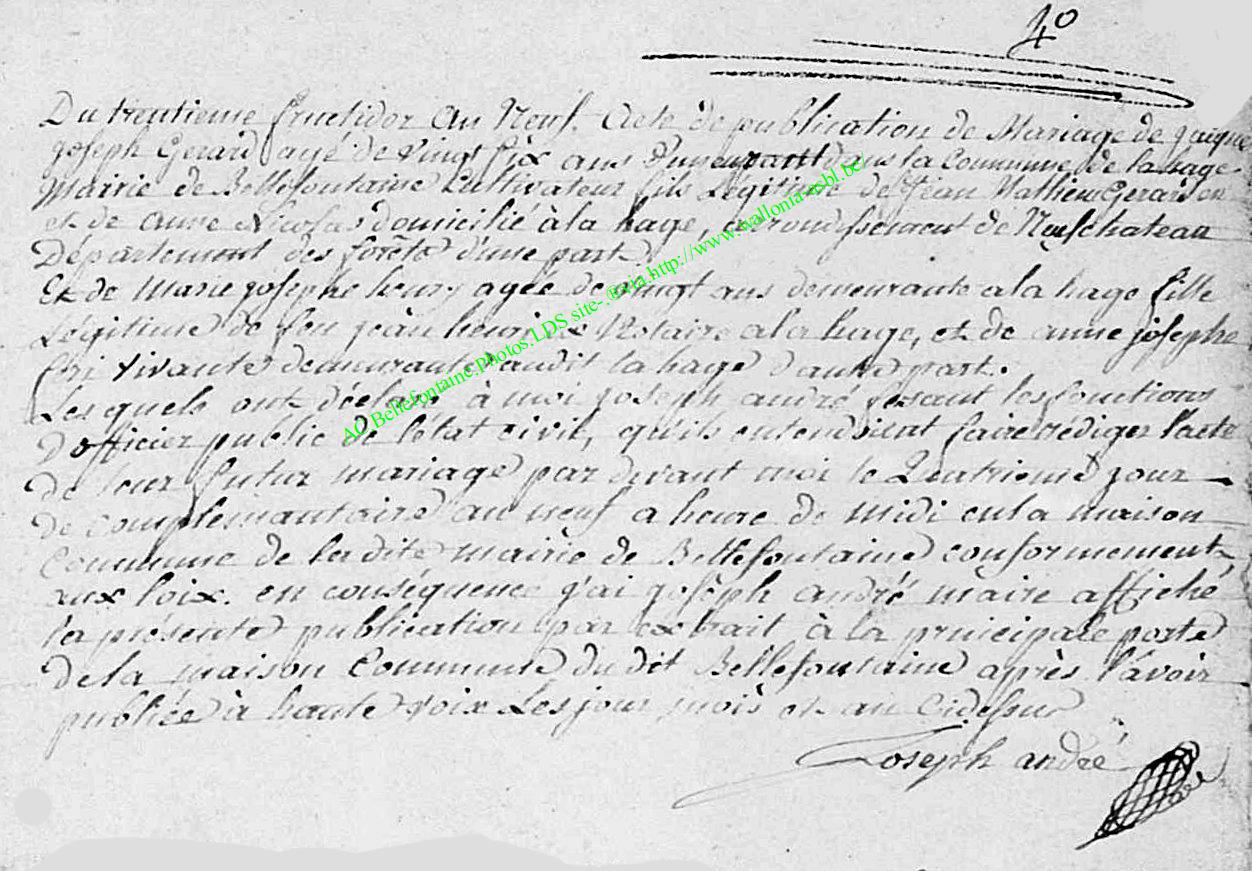 4°
Du trentieme fructidor an Neuf. Acte de publication de Mariage de jacque
joseph Gerard agé de vingt six ans dans la Commune de la hage
Mairie de Bellefontaine Cultivateur fils Légitime de Jean Mathieu Gerard
et de anne Nicolas domicilié à la hage, arrondissement de Neufchateau
Département des forêts d'une part.
Et de Marie josephe henry agée de vingt ans demeurante a la hage fille
Légitime de feu jean henri Notaire a la hage, et de anne josephe
vivante demeurante audit la hage d'autre part.
Les quels ont déclaré à moi joseph andré fesant les fonctions
D'officier public de l'état civil, qu'ils entendoient faire rediger l'acte
de leur futur mariage par devant moi le Quatrieme jour
de complémantaire an neuf a heure de midi en la maison
Commune de ladite mairie de Bellefontaine conformement
aux loix. en conséquence j'ai joseph andré maire affiché
la présente publication par extrait à la principale porte
de la maison Commune dudit Bellefontaine après l'avoir
publiée à haute voix Les jour, mois et an Cidessus
Joseph andré
AC Bellefontaine.Photos.LDS site-.@via.http://www.wallonia-asbl.be/